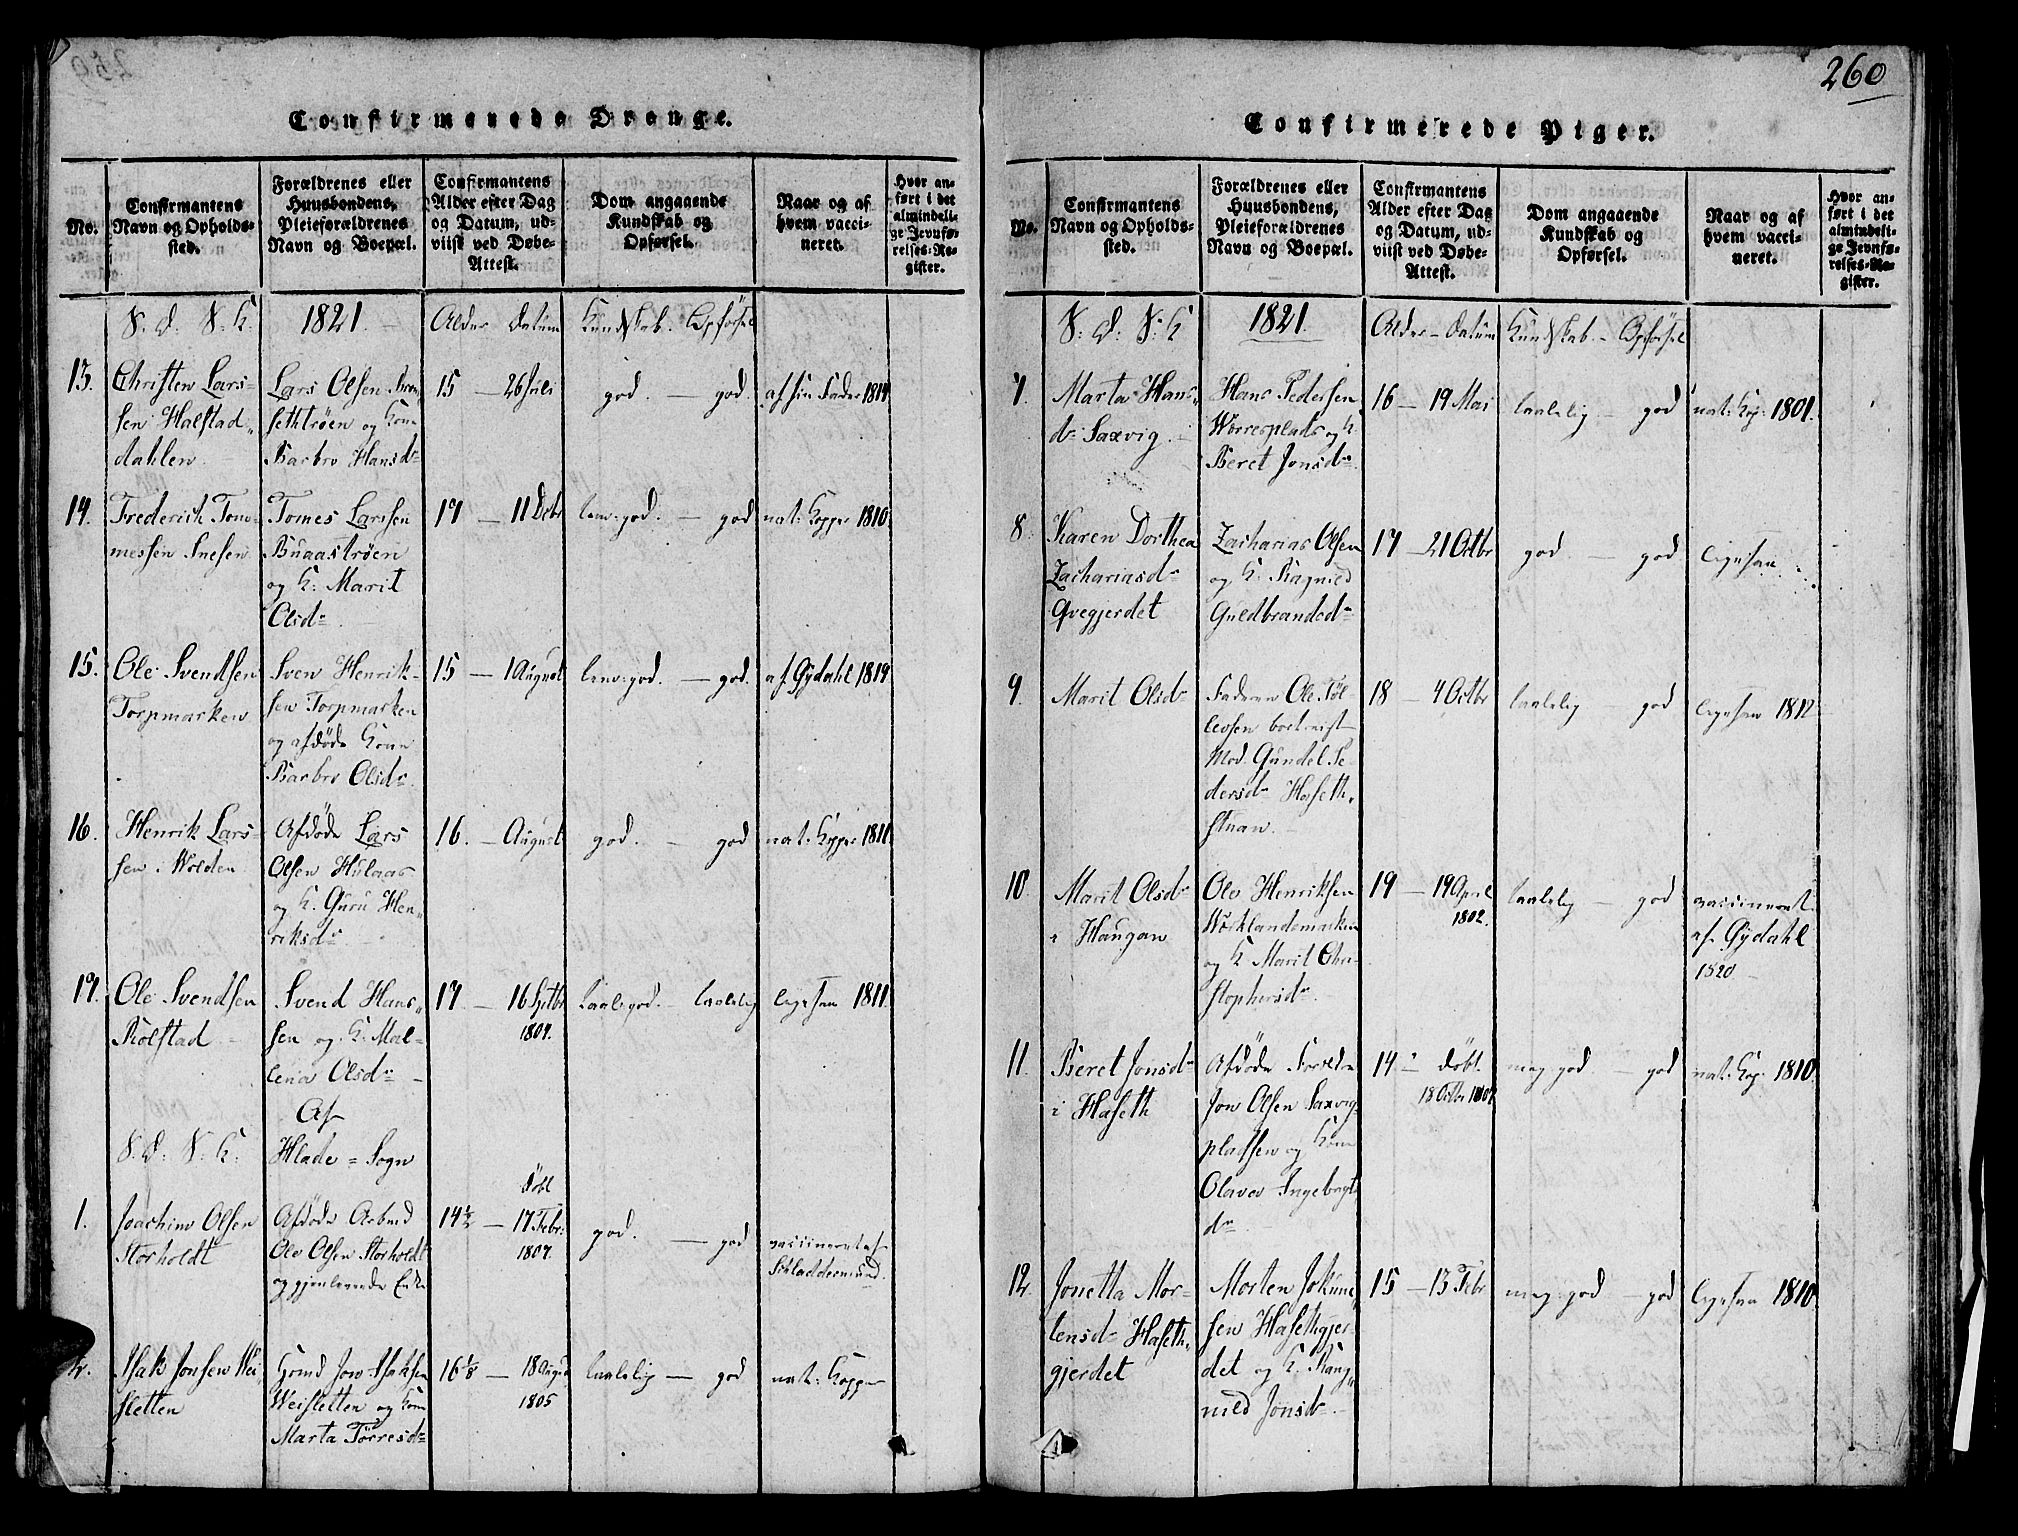 260
Confirmerede Drenge.
No.
Confirmantens
Navn og Opholds-
sted.
Forældrenes eller
Huusbondens,
Pleieforældrenes
Navn og Boepæl.
Confirmantens
Alder efter Dag
og Datum, ud-
viist ved Døbe-
Attest.
Dom angaaende
Kundskab og
Opførsel.
Naar og af
hvem vacci-
neret.
Hvor an-
ført i det
almindeli-
ge Jevnfø-
relses-Re-
gister.
S. D. N. K.
1821.
Alder Datum
Kundskab. Opførsel
13.
Christen Lars-
sen Halstad
dahlen
Lars Olsen
sethtrøen og Kone
Barbro Hansdr
15 — 26 Juli
god. — god.
af sin Fader 1814
14.
Frederich Tom-
messen Snesen
Tomes Larssen
Buaastrøen
og K. Marit
Olsdr
17 — 11 Decbr
god. — god
nat. Kopper 1810
15.
Ole Svendsen
Torpmarken
Sven Henrik-
sen Torpmarken
og afdøde Kone
Barbro Olsdr
15 — 1 August
god. — god.
af Gydahl 1819
16.
Henrik Lars-
sen i Wolden
Afdøde Lars
Olsen Hulaas
og K. Guru Hen-
riksdr
16. — August
god. — god
nat. Kopper 1811
17.
Ole Svendsen
Rolstad
Svend Hans-
sen og K. Mal-
lena Olsdr
17 — 16 Septbr
1804.
god. — taalelig
ligesaa 1811.
Af
S. D. N. K.
Hlade = Sogn
1.
Joachim Olsen
Storholdt
Afdøde Arbmd
Ole Olsen Storholdt
og gjenlevende Enke
14½ — Døbt
17 Febr.
1807.
god. — god
vaccineret af
Schladdermund.
2.
Isak Jonsen Wei-
sletten
Isaksen
Weisletten og Kone
Marta Torresdr
16 — 18 August
1805
taalelig — god
nat. Kopper
Confirmerede Piger.
No.
Confirmantens
Navn og Opholds-
sted.
Forældrenes eller
Huusbondens,
Pleieforældrenes
Navn og Boepæl.
Confirmantens
Alder efter Dag
og Datum, ud-
viist ved Døbe-
Attest.
Dom angaaende
Kundskab og
Opførsel.
Naar og af
hvem vacci-
neret.
Hvor an-
ført i det
almindeli-
ge Jevnfø-
relses-Re-
gister.
S. D. N. K
1821.
Alder — Datum
Kundskab — Opførsel
7.
Marta Hans-
dr Saxvig.
Hans Pedersen
Worresplads og K.
Beret Jonsdr
16 — 19 Mai
taalelig — god
nat. Kop. 1801.
8.
Karen Dorthea
Zachariasdr
Qvegjerdet
Zacharias Olsen
og K. Ragnild
Guldbrandsdr
17 — 21 Octbr
god — god
ligesaa
9.
Marit Olsdr
Faderen Ole Tol
levsen bortreist
Mod. Gundel Pe-
dersdr Haseth-
stuan.
18 — 4 Octbr
taalelig — god
ligesaa 1812
10.
Marit Olsdr
i Haugan
Ole Henriksen
Worklandsmarken
og K Marit Chri-
stophersdr
19 — 19 April
1802.
taalelig — god
vaccineret
af Gydahl
1820
11.
Beret Jonsdr
i Haseth
Afdøde Foreldre
Jon Olsen Saxvig-
pladsen og Kone
Olava Ingebrigts
dr
14 — døbt
18 Octbr 1807
meg. god — god
nat. Kop. 1810
12.
Jonetta Mor-
tensdr Haseth-
gjerdet
Morten Jokum-
sen Hasethgjer-
det og K. Rang-
nild Jonsdr.
15 — 13 Febr
meg. god — god
ligesaa 1810